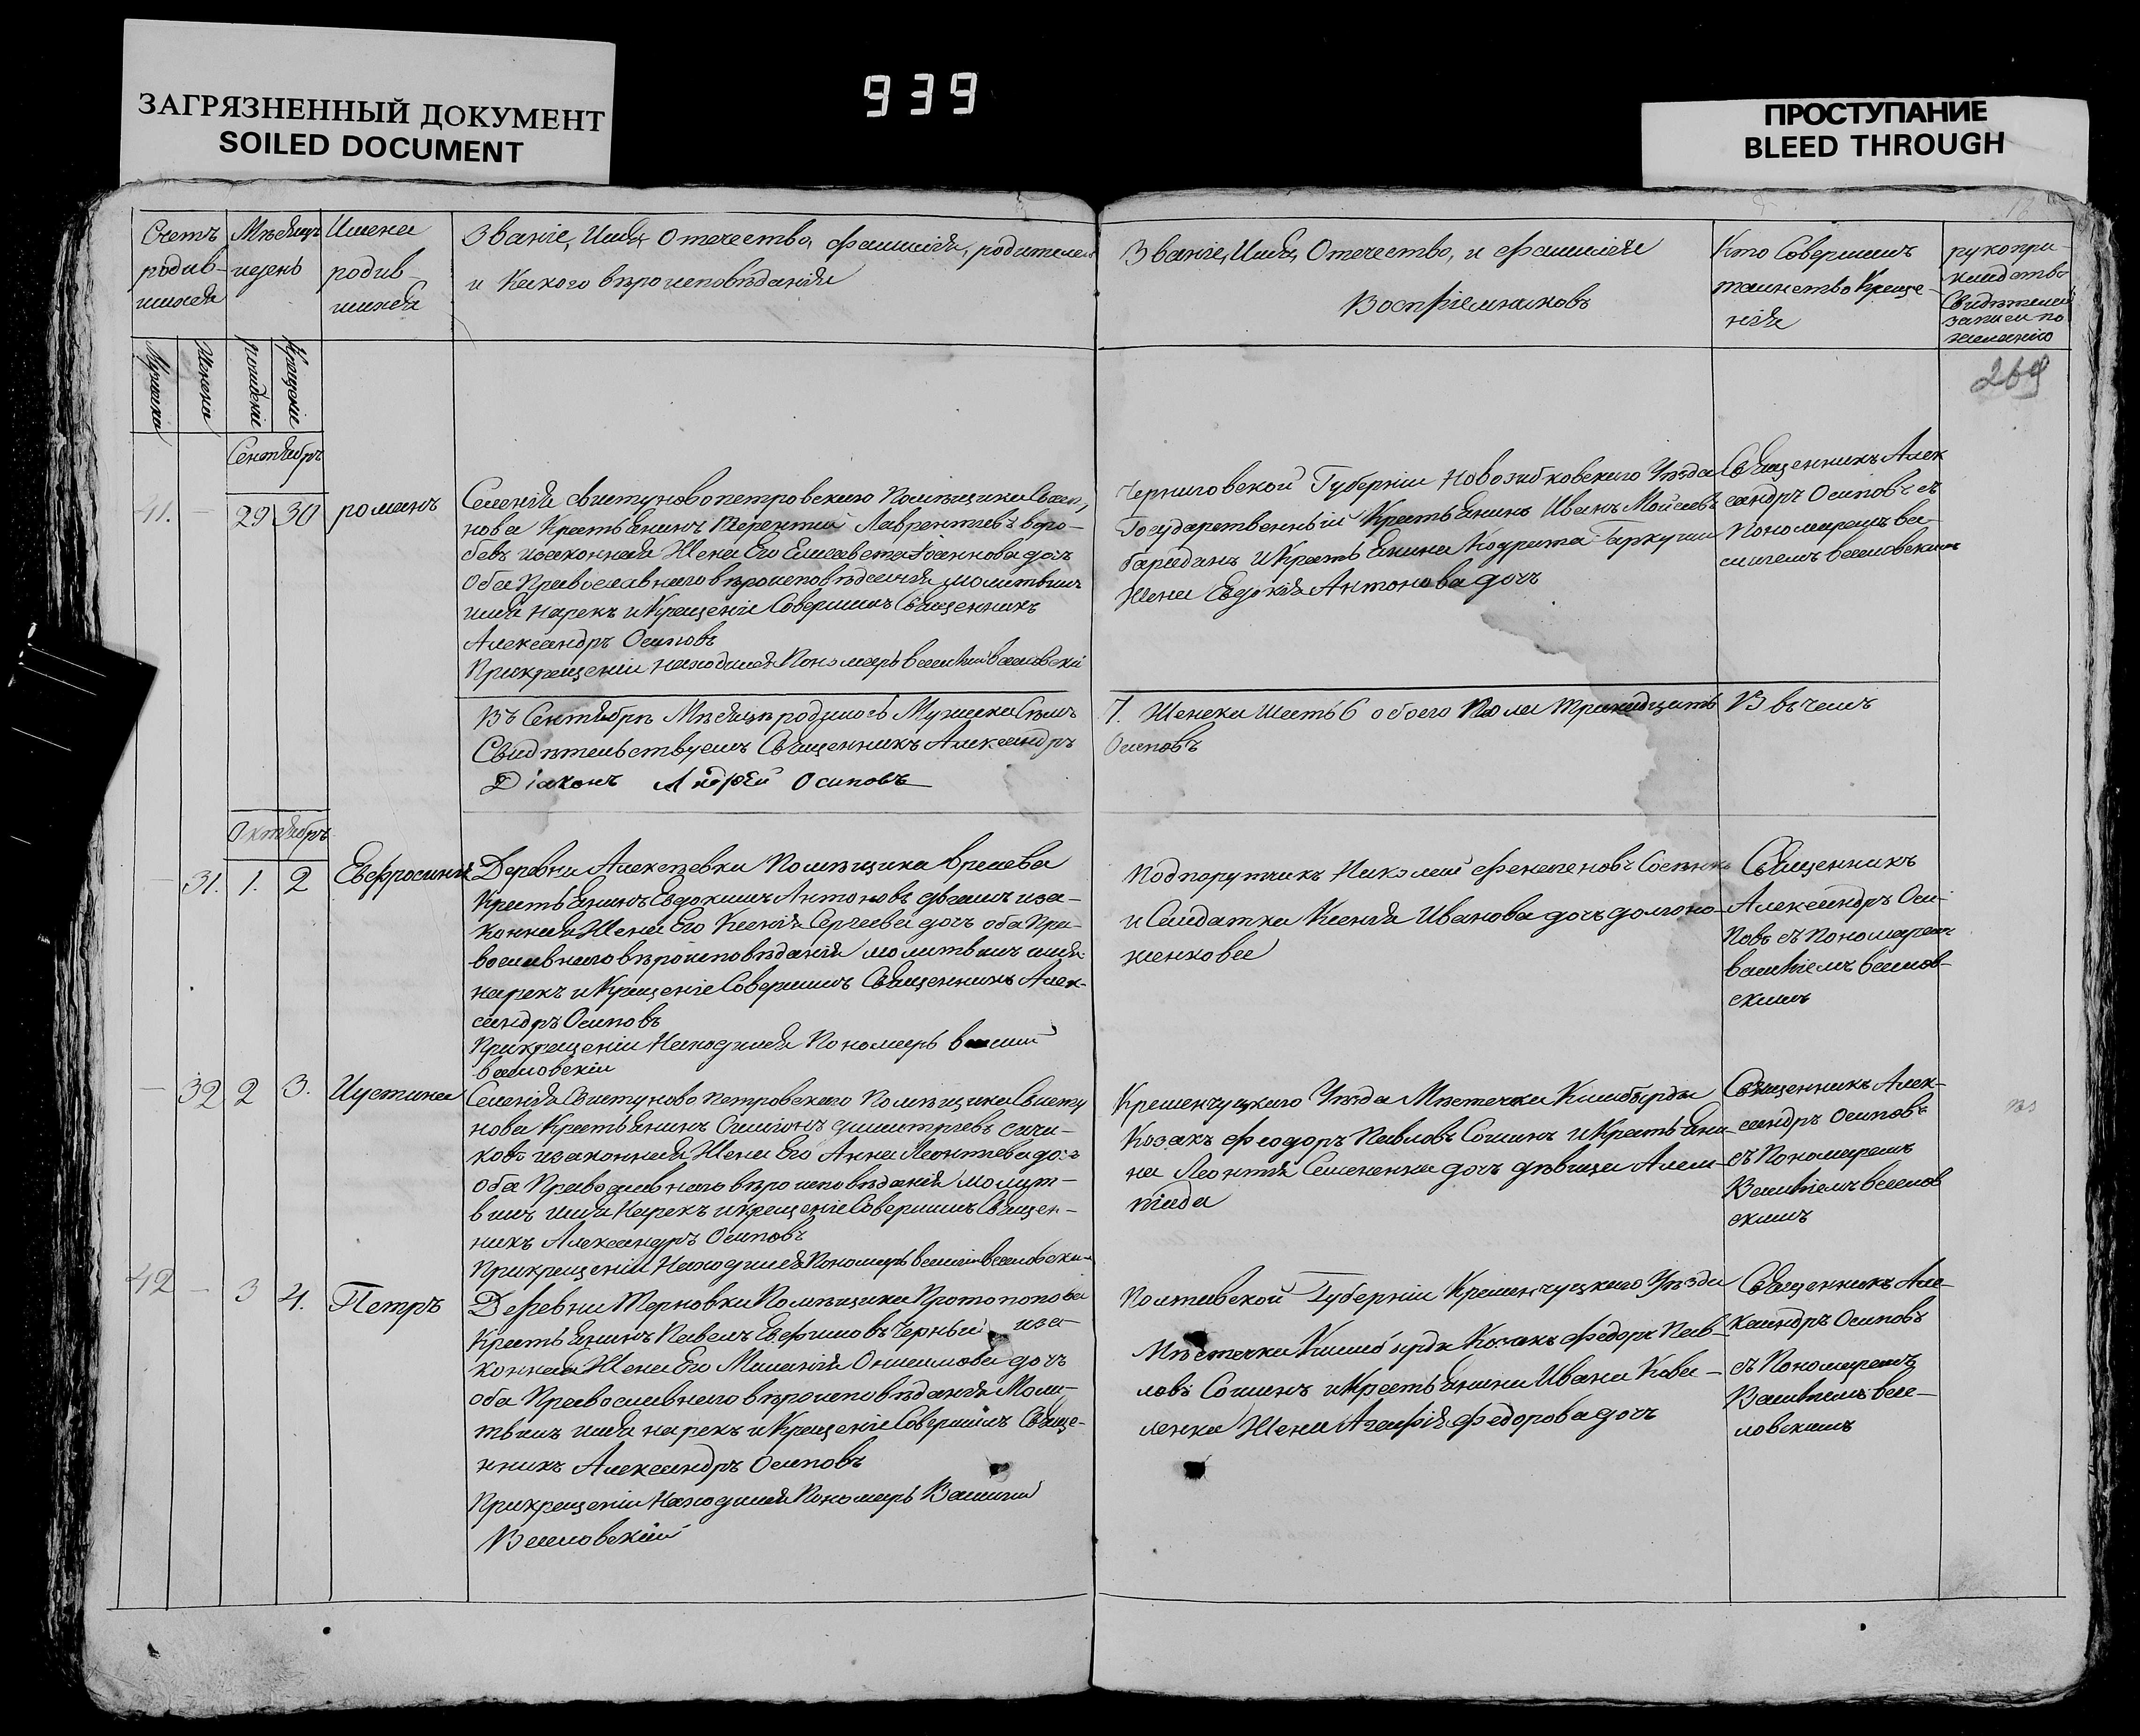 ЗАГРЯЗНЕННЫЙ ДОКУМЕНТ
SOILED DOCUMENT
939
ПРОСТУПАНИЕ
BLEED THROUGH
Счетъ родив-шихся
Мужеска
Женска
Мѣсяцъ и день
рожденія
Крещенія
Имена родив-шихся
Званіе, Имя, Отечество, Фамилія, родителей
и Какого вѣроисповѣданія
Званіе, Имя, Отечество, и Фамилія
Воспріемниковъ
Кто Совершилъ
таинство Креще-
нія
рукопри-
кладство
Свидѣтелей
записи по
желанію
269
Сентябрь
41. — 29 30 романъ
Селенія Свистуновопетровскаго Помѣщика Свисту
нова Крестьянинъ Терентій Лаврентіевъ воро-
бевъ изаконная Жена Его Елисавета Іоаннова дочь
Оба Православнаго вѣроисповѣданія молитвилъ
имя Нарекъ и Крещеніе Совершилъ Священникъ
Александръ Осиповъ
Прикрещеніи находился Пономарь
Черниговской Губерніи Новозибковскаго Уѣзда
Государственный Крестьянинъ Иванъ Мойсеевъ
и Крестьянина Кодрата
Жена Евдокія Антонова дочь
Священникъ Алек
сандръ Осиповъ съ
Пономаремъ ва-
силіемъ
Въ Сентябрѣ Мѣсяцѣ родилось Мужеска Семь
7. Женска Шесть 6 обоего Пола Тринадцать
В въ чемъ
Свидѣтельствуемъ Священникъ Александръ
Осиповъ
Діаконъ Андрей Осиповъ
Октябрь
— 31. 1. 2 Евфросинія
Деревни Алексѣевки Помѣщика
Крестьянинъ Евдокимъ Антоновъ иза-
конная Жена Его Ксенія Сергѣева дочь оба Пра-
вославнаго вѣроисповѣданія молитвилъ имя
нарекъ и Крещеніе Совершилъ Священникъ Алек-
сандръ Осиповъ
Прикрещеніи Находился Пономарь
Подпоручикъ Николай
и Салдатка Ксенія Иванова дочь долгоно-
женкова
Священникъ
Александръ Оси-
повъ съ Пономаремъ
василіемъ
— 32 2 3. Иустина
Селенія Свистуново петровскаго Помѣщика Свисту
нова Крестьянинъ Димитріевъ
изаконная Жена Его Анна Леонтева дочь
оба Православнаго вѣроисповѣданія молит-
вилъ имя Нарекъ и крещеніе Совершилъ Священ-
никъ Александръ Осиповъ
Прикрещеніи Находился Пономарь
Кременчуцкаго Уѣзда Мѣстечка
Козакъ Феодоръ Павловъ Сошинъ и Крестьяни
на Леонтія Семененка дочь дѣвица
Священникъ Алек-
сандръ Осиповъ
съ Пономаремъ
Василіемъ
42 — 3 4. Петръ
Деревни Терновки Помѣщика Протопопова
Крестьянинъ Павелъ Ефимовъ Черный иза-
конная Жена Его Меланія Онисимова дочь
оба Православнаго вѣроисповѣданія Моли-
твилъ имя нарекъ и Крещеніе Совершилъ Свяще-
нникъ Александръ Осиповъ
Прикрещеніи Находился Пономарь Василій
Полтавской Губерніи Кременчуцкаго Уѣзда
Мѣстечка Козакъ Федоръ Пав-
ловъ Сошинъ и Крестьянина Ивана Кова-
ленка Жена Агафія Федорова дочь
Священникъ Але-
ксандръ Осиповъ
съ Пономаремъ